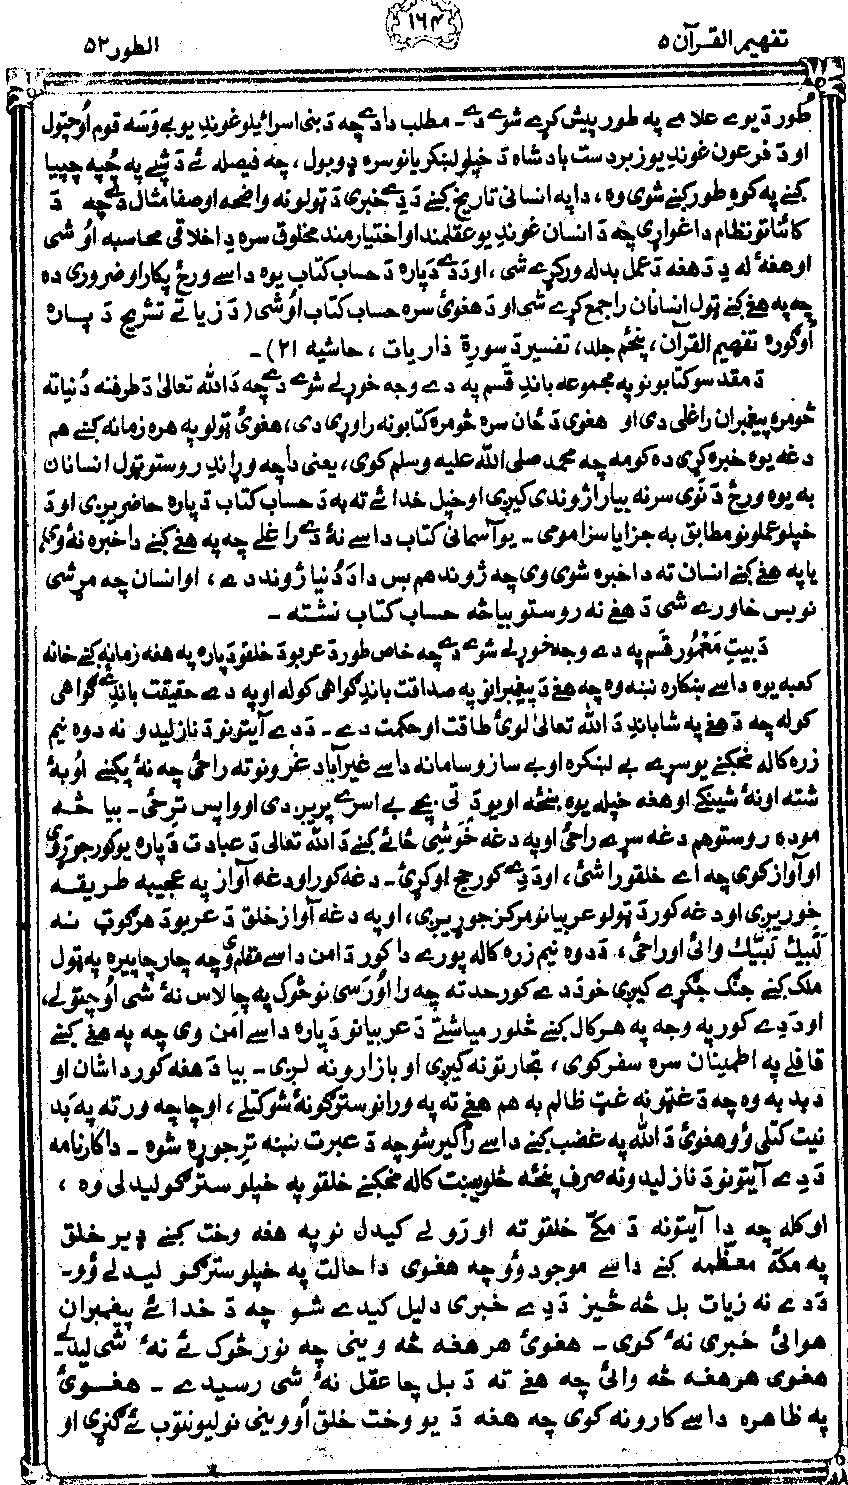 تفهيم القرآن ۵
۱۶۴
الطور ۵۲
طُور دَ يوے علامے په طور پيش کړے شوے دے۔ مطلب دا دے چه دَ بنى اسرائيلو غوندِ يو بے وَسه قوم اُوچتول
او دَ فرعون غوندِ يو زبردست بادشاه دَ خپلو لښکريانو سره ډوبول، چه فيصله ئے دَ شپے په چُپه چپيا
کښے په کوهِ طور کښے شوى وه، دا په انسانى تاريخ کښے دَ دِے خبرى دَ ټولو نه واضحه او صفا مثال دے چه دَ
کائناتو نظام دا غواړى چه دَ انسان غوندِ يو عقلمند او اختيارمند مخلوق سره دِ اخلاقى محاسبه اوُشى
او هغهٔ له دِ دَ هغه دَ عمل بدله ورکړے شى، او دَ دے دَ پاره دَ حساب کتاب يوه داسے ورځ پکار او ضرورى ده
چه په هغے کښے ټول انسانان راجمع کړے شى او دَ هغوئ سره حساب کتاب اوُشى (دَ زياتے تشريح دَ پاره
اُوګوره تفهيم القرآن، پنځم جلد، تفسير دَ سورة ذاريات، حاشيه ۲۱)۔
دَ مقدسو کتابونو په مجموعه باندِ قَسم په دے وجه خوړلے شوے دے چه دَ الله تعالىٰ دَ طرفنه دُنيا ته
څومره پيغمبران راغلى دى او هغوى دَ ځان سره څومره کتابونه راوړى دى، هغوئ ټولو په هره زمانه کښے هم
دغه يوه خبره کړى ده کومه چه محمد صلى الله عليه وسلم کوى، يعنى دا چه وړاندِ روستو ټول انسانان
به يوه ورځ دَ نَوى سر نه بيا راژوندى کيږى او خپل خدائے ته به دَ حساب کتاب دَ پاره حاضريږى او دَ
خپلو عملونو مطابق به جزا يا سزا مومى۔ يو آسمانى کتاب داسے نهٔ دے راغلے چه په هغے کښے دا خبره نهٔ وى،
يا په هغے کښے انسان ته دا خبره شوى وى چه ژوند هم بس دا دَ دُنيا ژوند دے، او انسان چه مړ شى
نو بس خاورے شى دَ هغے نه روستو بيا څه حساب کتاب نشته۔
دَ بيتِ مَعمُور قَسم په دے وجه خوړلے شوے دے چه خاص طور دَ عربو دَ خلقو دَ پاره په هغه زمانه کښے خانه
کعبه يوه داسے ښکاره نښه وه چه هغے دَ پيغمبرانو په صداقت باندِ ګواهى کوله او په دے حقيقت باندِ ئے ګواهى
کوله چه دَ هغے په شا باندِ دَ الله تعالىٰ لوئ طاقت او حکمت دے۔ دَ دے آيتونو دَ نازليدو نه دوه نيم
زره کاله مخکښے يو سړے بے لښکره او بے ساز و سامانه داسے غيرآباد غرونو ته راځى چه نهٔ پکښے اوُبهٔ
شته او نهٔ شينکے او هغه خپله يوه ښځه او يو دَ تى بچے بے اسرے پريږدى او واپس ترځى۔ بيا څه
موده روستو هم دغه سړے راځى او په دغه خوشې ځائے کښے دَ الله تعالى دَ عبادت دَ پاره يو کور جوړوى
او آواز کوى چه اے خلقو راشئ، او دَ دِے کور حج اوکړئ۔ دغه کور او دغه آواز په عجيبه طريقه
خوريږى او دغه کور دَ ټولو عربيانو مرکز جوړيږى، او په دغه آواز خلق دَ عربو دَ هر ګوټ نه
لَبَّيك لَبَّيك وائى او راځى، دَ دوه نيم زره کاله پورے دا کور دَ امن داسے مقام وى چه چارچاپيره په ټول
ملک کښے جنګ جګړے کيږى خو دَ دے کور حد ته چه را اوُرسى نو څوک په چا لاس نهٔ شى اُوچتولے،
او دَ دِے کور په وجه په هر کال کښے څلور مياشتے دَ عربيانو دَ پاره داسے اَمن وى چه په هغے کښے
قافلے په اطمينان سره سفر کوى، تجارتونه کيږى او بازارونه لږى۔ بيا دَ هغه کور دا شان او
دبدبه وه چه دَ غټو نه غټ ظالم به هم هغے ته په ورانو سترګو نهٔ شو کتلے، او چا چه ورته په بَد
نيت کتلى وُو هغوئ دَ الله په غضب کښے داسے راګير شو چه دَ عبرت نښه ترِ جوړه شوه۔ دا کارنامه
دَ دِے آيتونو دَ نازليدو نه صرف پنځه څلويښت کاله مخکښے خلقو په خپلو سترګو ليدلى وه،
او کله چه دا آيتونه دَ مکّے خلقو ته اورَولے کيدل نو په هغه وخت کښے ډير خلق
په مکّه معظّمه کښے داسے موجود وُو چه هغوى دا حالت په خپلو سترګو ليدلے وُو۔
دَ دے نه زيات بل څه څيز دَ دِے خبرى دليل کيدے شو چه دَ خدائے پيغمبران
هوائى خبرى نهٔ کوى۔ هغوئ هر هغه څه وينى چه نور څوک ئے نهٔ شى ليدلے۔
هغوى هر هغه څه وائى چه هغے ته دَ بل چا عقل نهٔ شى رسيدے۔ هغوئ
په ظاهره داسے کارونه کوى چه هغه دَ يو وخت خلق اُووينى نو ليونتوب ئے ګنړى او